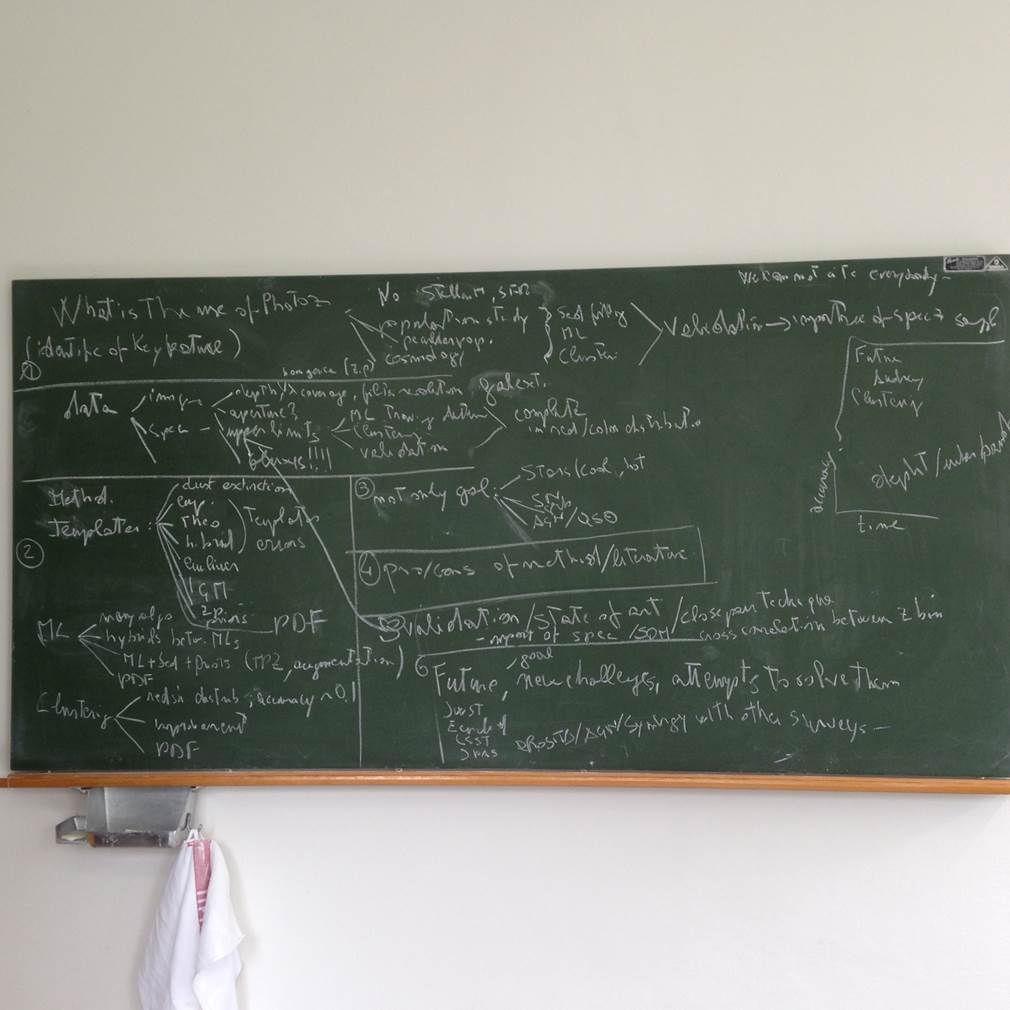 We can not cite everybody-
What is The use of Photoz
No stellar M, SFR
population study
cosmology
Sed fitting
ML
Cluster
Validation → importance of spec z sampl
(identific of Key feature)
①
data
imag
depth/coverage, resolution
galext.
spec
aperture?
upper limits
ML Training
Clustering
validation
complete
mixed/color distributi
Futur
Clustering
accuracy
time
depht/
②
Method.
Templates:
dust extinction
emp.
Theo
hybrid
Templates
errors
em lines
IGM
z priors
PDF
ML
many algo
hybrids betw. MLs
ML + Sed + Photo
PDF
Clustering
redsh distrib, accuracy ~0.1
improvement
PDF
③
not only gal:
Stars/cool, hot
SNe
AGN/QSO
④ pro/cons of method/literature
5 validation/State of art/close pair technique
- import of spec/SOM
cross correlation between z bin
6
goal
Future, new challenges, attempts to solve them
JWST
Euclid
LSST
JPAS
/AGN/Synergy with other surveys -